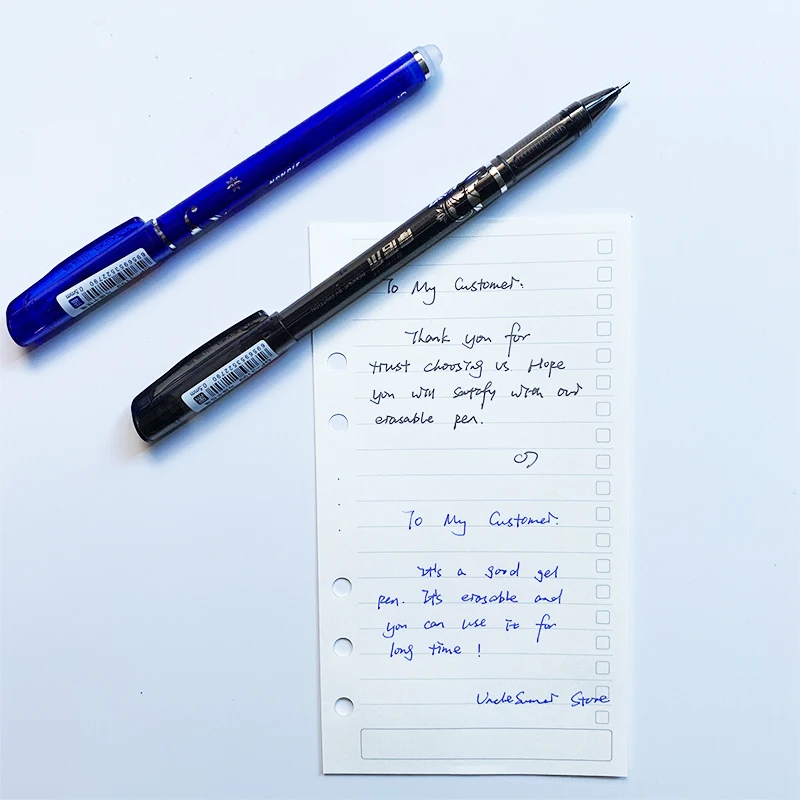 6969535522790 0.5mm
6969535522790 0.5mm
To My Customer:
Thank you for
trust choosing us Hope
you will satify with our
erasable pen.
To My Customer:
It's a good gel
pen. It's erasable and
you can use it for
long time !
Store